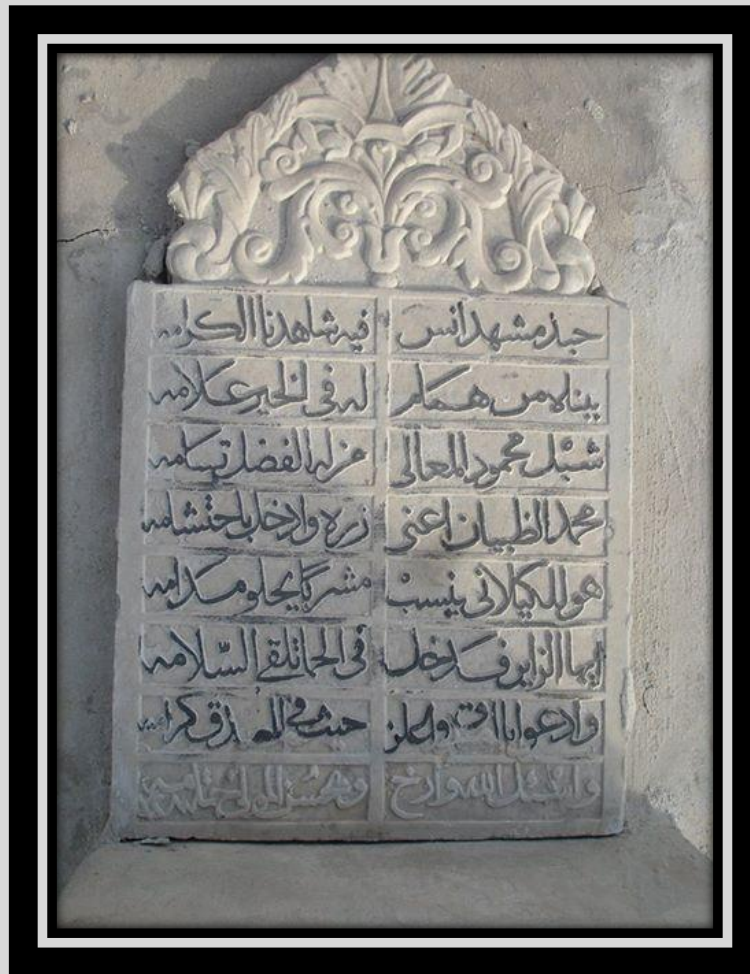 حبذ مشهد انس فيه شاهدنا الكرامه
بيناه من همام له في الخير علامه
شبل محمود المعالي عز له الفضل تسامه
محمد الظبيان اعني زره وادخل باحتشامه
هو للكيلاني ينسب مشربًا يحلو مدامه
ايها الزاير فدخل في الحما تلقى السّلامه
وادعوا بابا حيث في
واسئل الله وارخ